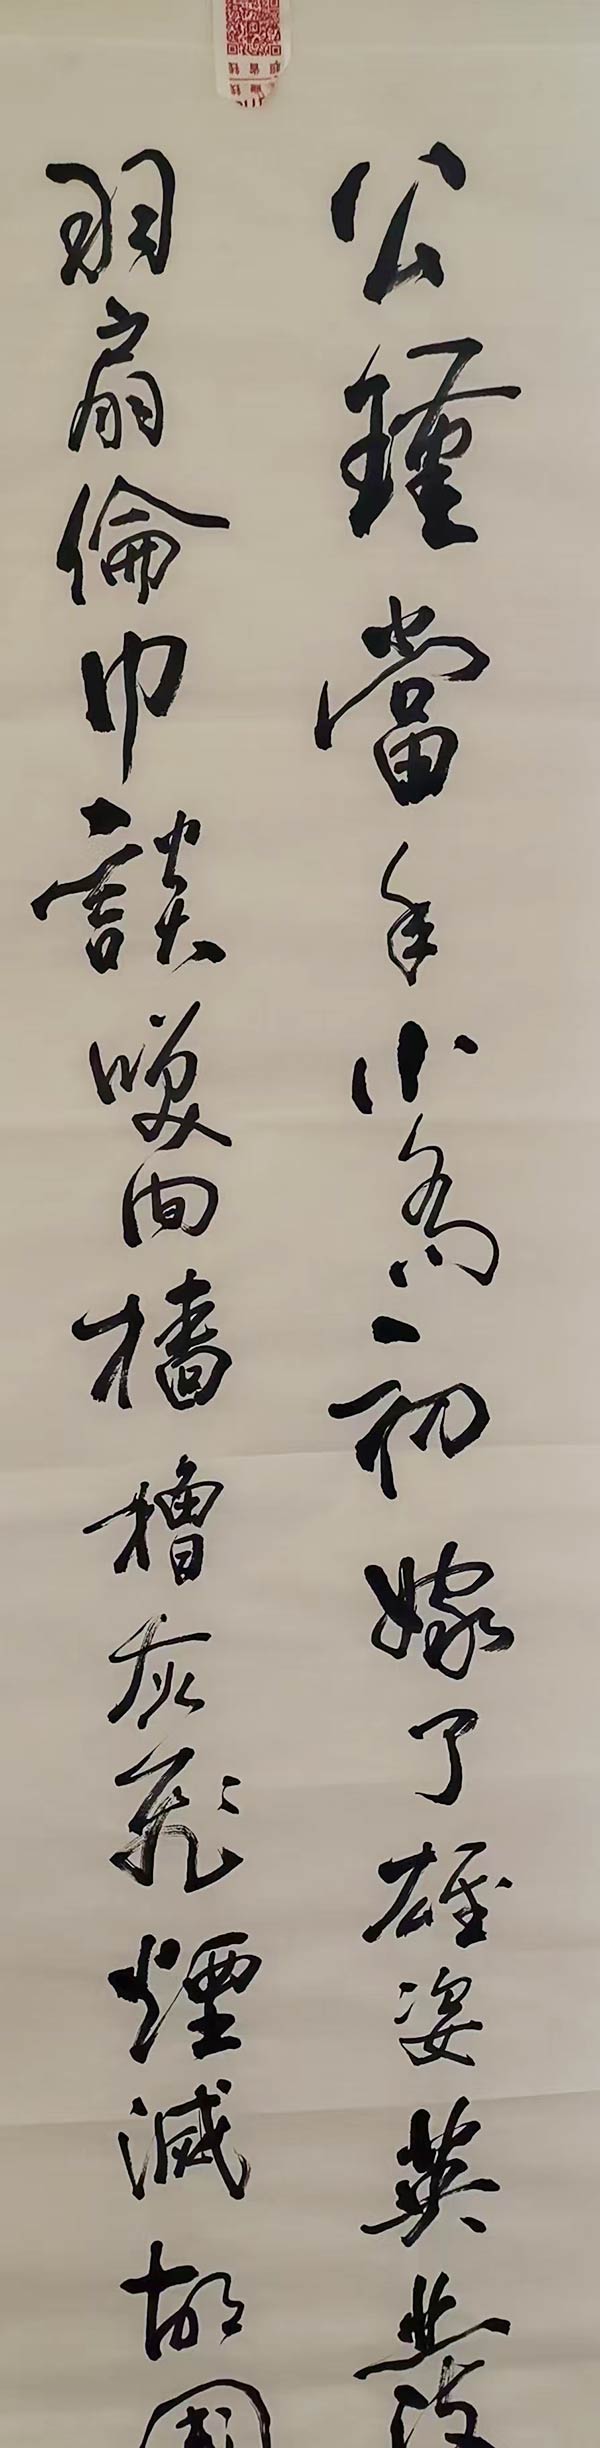 公瑾當年小喬初嫁了雄姿英發
羽扇倫巾談笑間檣櫓灰飛煙滅故國